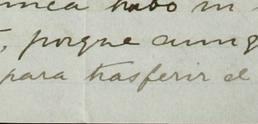 nunca hubo ni
, porque aunq
para trasferir el